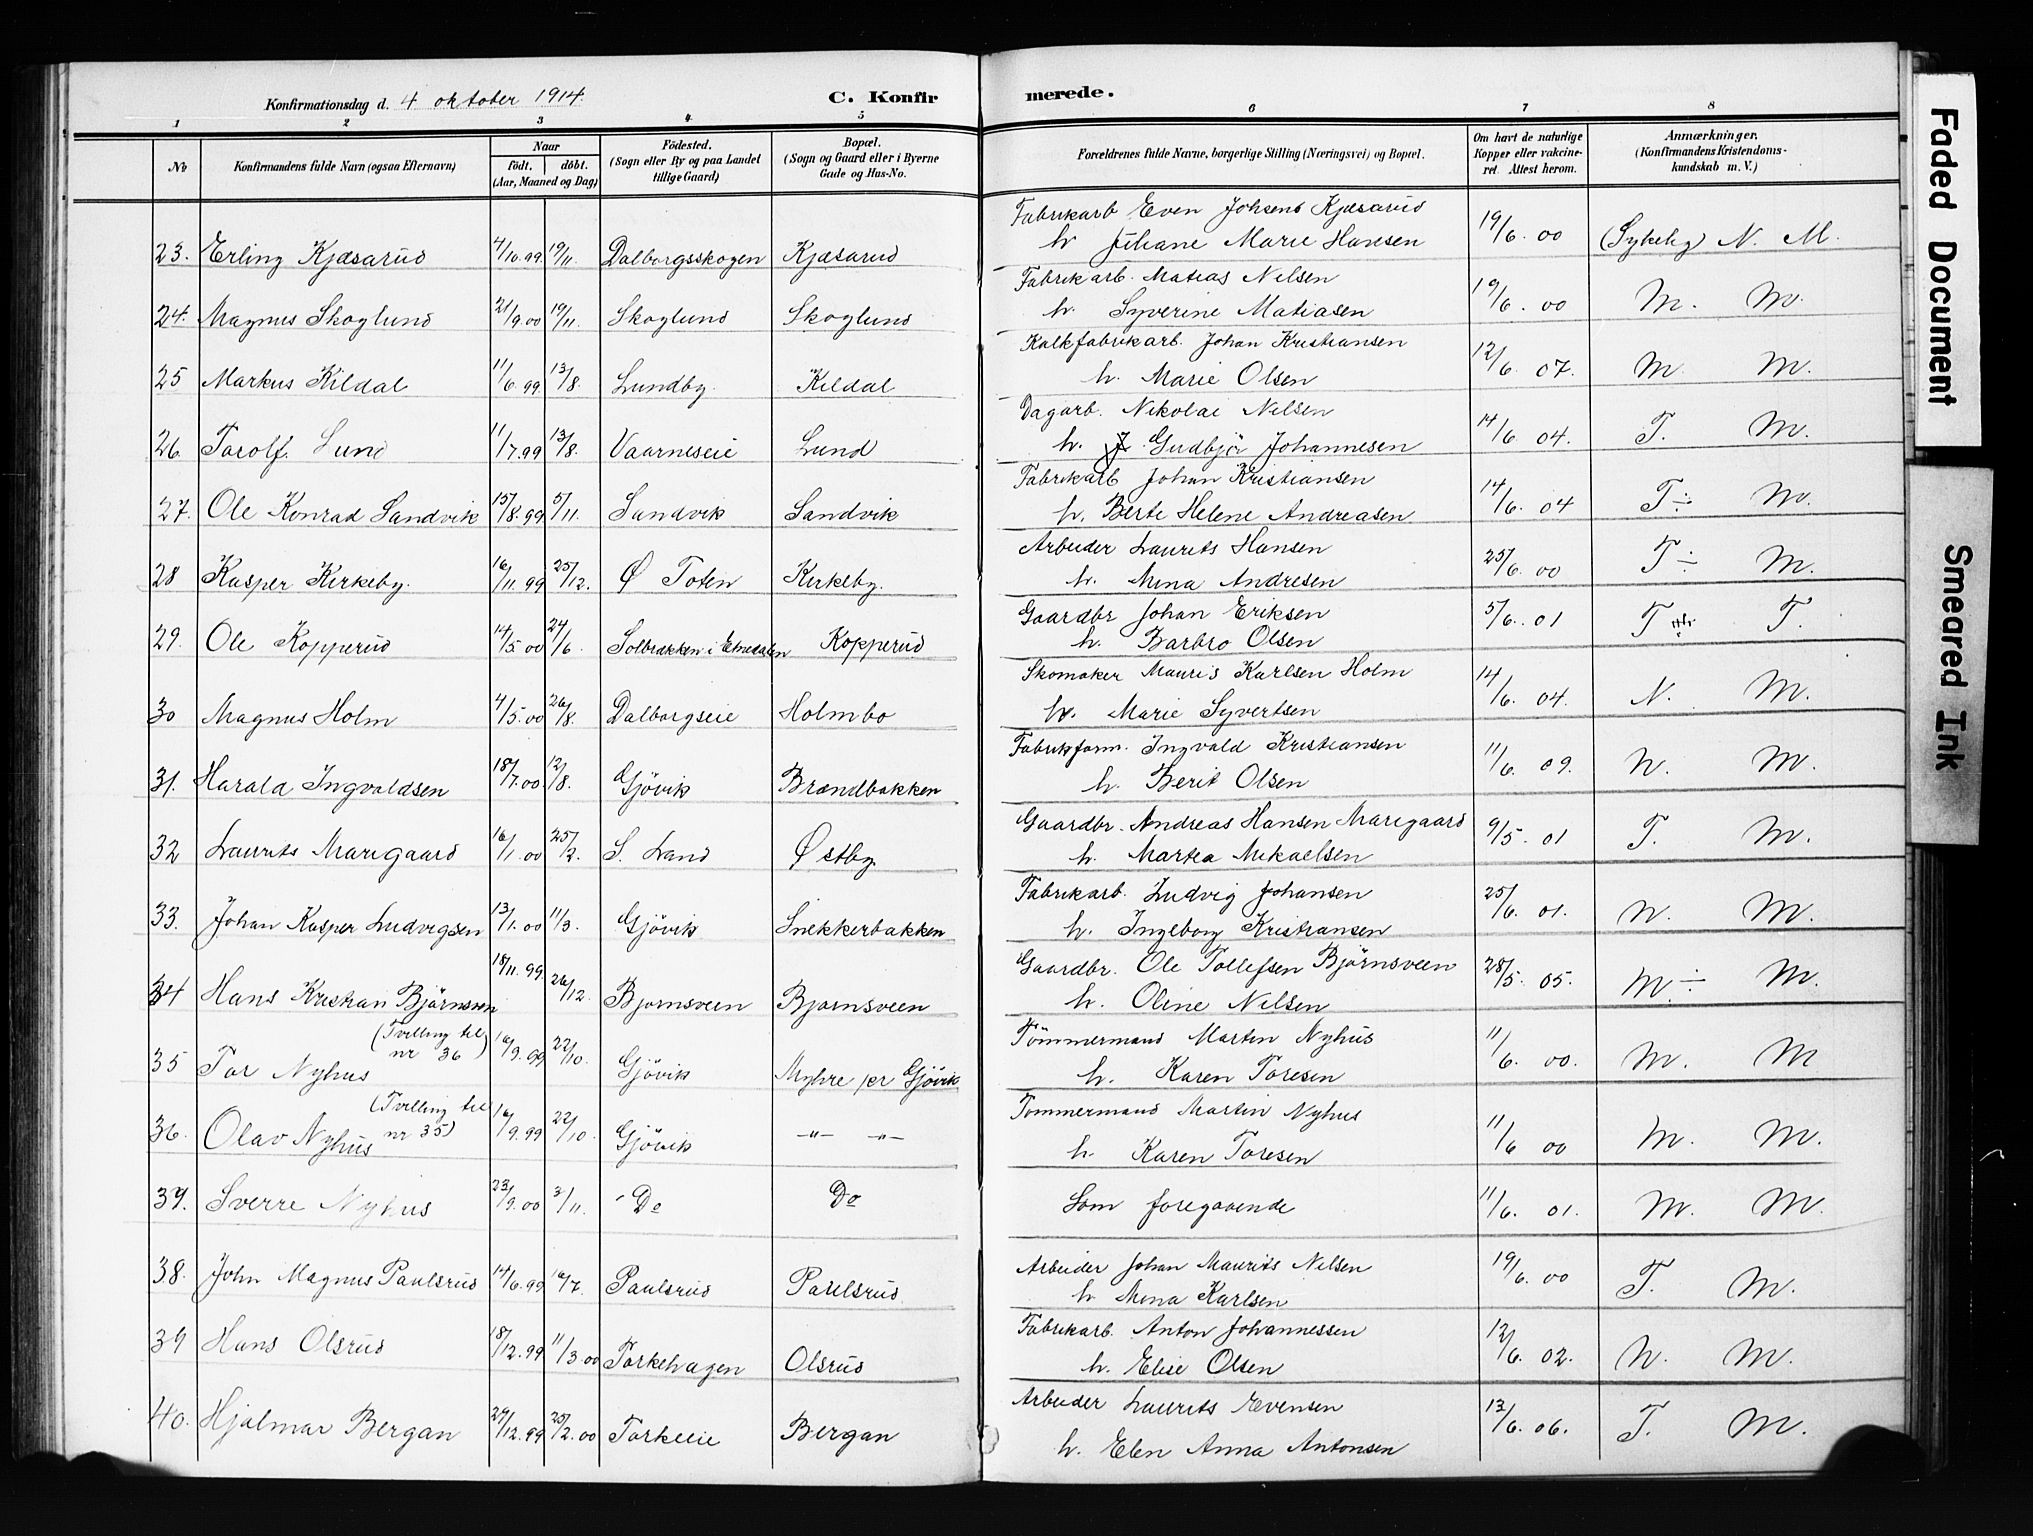 Konfirmationsdag d. 4 oktober 1914. C. Konfirmerede.
1 2 3 4 5 6 7 8
No Konfirmandens fulde Navn (ogsaa Efternavn) Naar født. døbt. (Aar, Maaned og Dag) Födested. (Sogn eller By og paa Landet tillige Gaard) Bopæl. (Sogn og Gaard eller i Byerne Gade og Hus-No. Forældrenes fulde Navne, borgerlige Stilling (Næringsvei) og Bopæl. Om havt de naturlige Kopper eller vakcineret. Attest herom. Anmærkninger. (Konfirmandens Kristendomskundskab m. V.)
Fabrikarb Even Johsens Kjæsarud
23. Erling Kjæsarud 4/10.99 19/11. Dalborgsskogen Kjæsarud h. Juliane Marie Hansen 19/6. 00 (Sykelig) N. M.
Fabrikarb. Matias Nilsen
24. Magnus Skoglund 21/9.00 19/11. Skoglund Skoglund h. Syverine Matiasen 19/6. 00 M. M.
Kalkfabrikarb. Johan Kristiansen
25 Markus Kildal 11/6.99 13/8. Lundby. Kildal h. Marie Olsen 12/6. 07. M. M.
Dagarb. Nikolai Nilsen
26. Torolf Lund 11/7.99 13/8. Vaarneseie Lund h. Gudbjör Johannesen 14/6 04. T. M.
Fabrikarb Johan Kristiansen
27. Ole Konrad Sandvik 15/8.99 5/11. Sandvik Sandvik h. Berte Helene Andreasen 14/6. 04 T ÷ M.
Arbeider Laurits Hansen
28 Kasper Kirkeby. 16/11.99 25/12. Ø Toten Kirkeby. h. Mina Andresen 25/6. 00 T ÷ M.
Gaardbr Johan Eriksen
29. Ole Kopperud 14/5.00 24/6. Solbrækken i Etnedalen Kopperud h. Barbro Olsen 5/6. 01 T T.
Skomaker Mauris Karlsen Holm
30 Magnus Holm 4/5.00 26/8. Dalborgseie Holmbo h. Marie Syvertsen 14/6. 04. N. M.
Fabrikform. Ingvald Kristiansen
31. Harald Ingvaldsen 18/7.00. 12/8. Gjövik Brændbakken h. Berit Olsen 11/6. 09. N. M.
Gaardbr. Andreas Hansen Marigaard
32 Laurits Marigaard 16/1.00 25/2. S. Land Østby h. Martea Mikaelsen 9/5. 01 T. M.
Fabrikarb. Ludvig Johansen
33. Johan Kasper Ludvigsen 13/1.00 11/3. Gjövik Snekkerbakken h. Ingeborg Kristiansen 25/6. 01. N. M.
Gaardbr. Ole Tollefsen Björnsveen
34 Hans Kristian Björnsven 18/11.99. 26/12. Bjornsveen Bjornsveen h. Oline Nilsen 28/5. 05. M. ÷ M.
(Tvilling til nr 36) Tömmermand Martin Nyhus
35 Tor Nyhus 16/9.99 22/10. Gjövik Myhre pr Gjövik h. Karen Toresen 11/6. 00. M. M
(Tvilling til nr 35) Tommermand Martin Nyhus
36. Olav Nyhus 16/9.99 22/10. Gjövik –„– –„– h. Karen Toresen 11/6 00 M. M.
37. Sverre Nyhus 23/9.00 2/11. Do Do Som foregaaende 11/6. 01. M. M.
Arbeider Johan Maurits Nilsen
38. John Magnus Paulsrud 14/6.99 16/7. Paulsrud Paulsrud h. Mina Karlsen 19/6. 00 T. M.
Fabrikarb. Anton Johannessen
39 Hans Olsrud 18/12.99 11/3 00 Torkehagen Olsrud h. Elise Olsen 12/6. 02. N. M.
Arbeider Laurits Evensen
40. Hjalmar Bergan 29/12.99 25/2.00 Torkeeie Bergan h. Elen Anna Antonsen 13/6. 06. T. M.
Faded Document
Smeared Ink